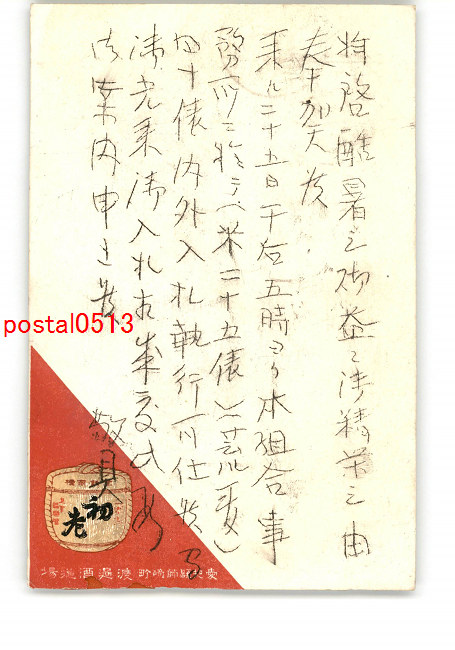 拝啓酷暑之砌益々御精栄之由
奉賀候
来ル二十五日午后五時ヨリ本組合事
務所ニ於テ米二十五俵
四十俵内外入札執行可仕候間
御光来御入札相成度此段
御案内申上候
敬具
初老
渡邊酒造場
postal0513